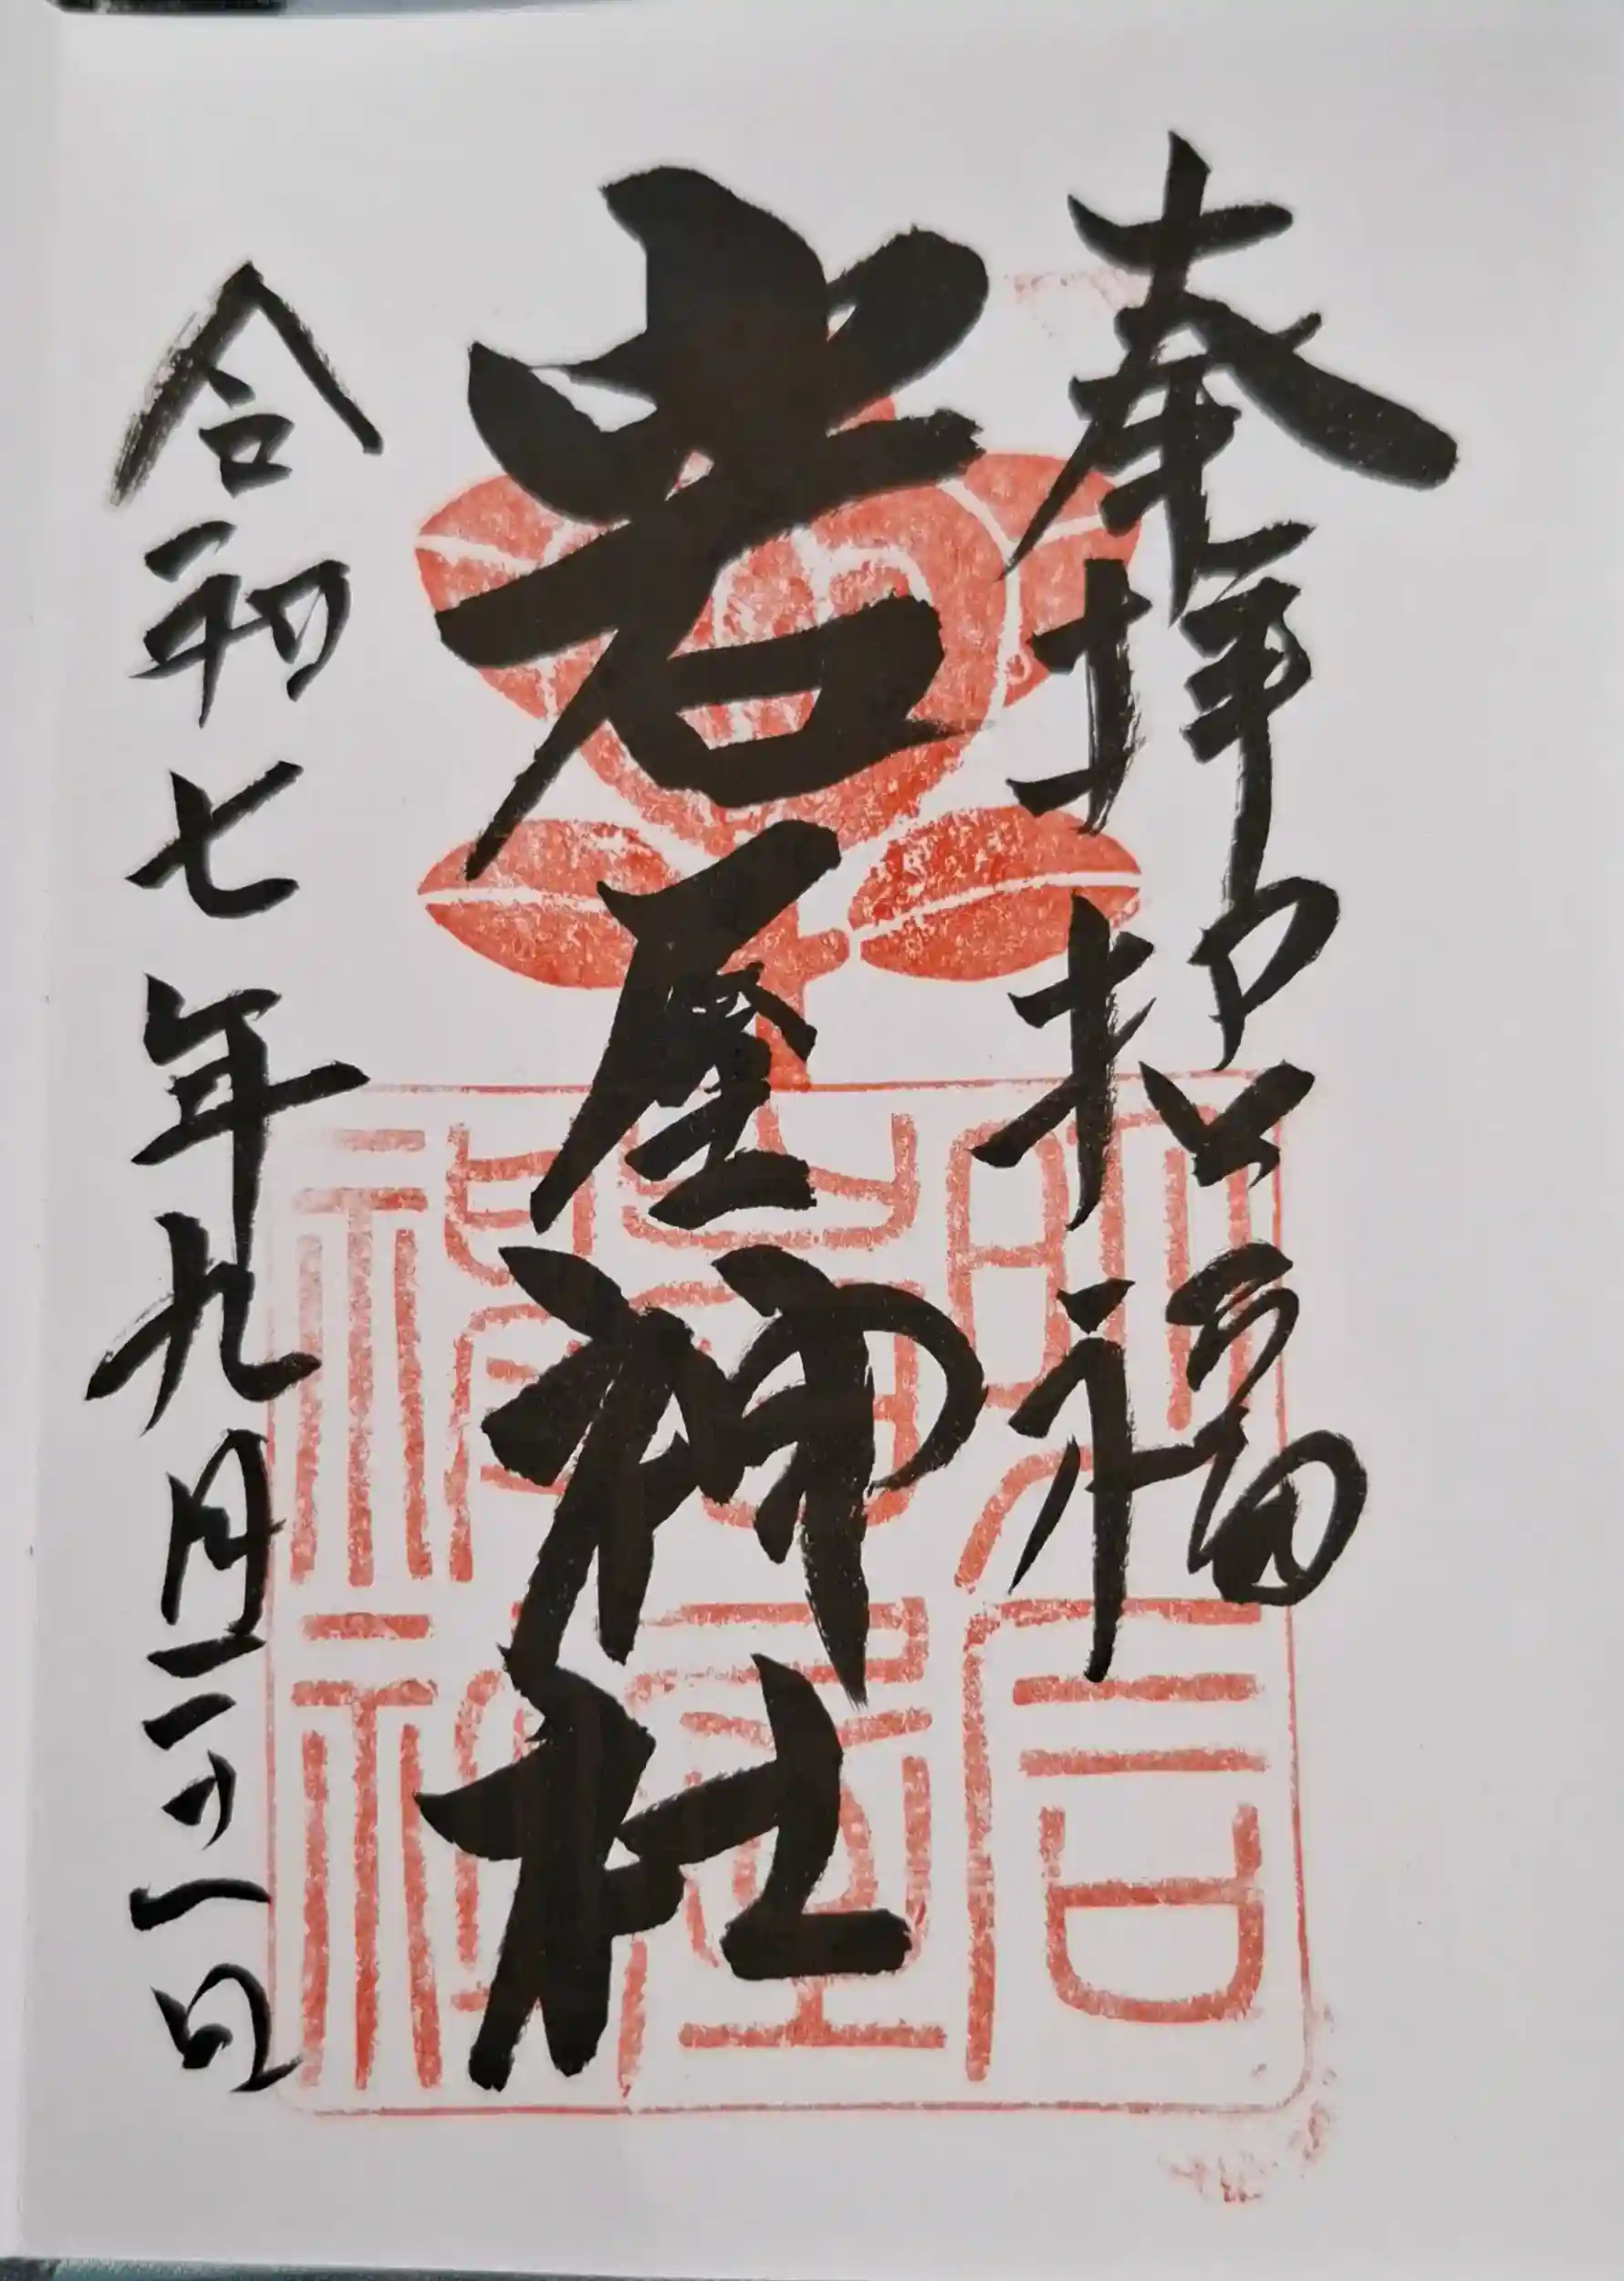 奉拝招福
岩屋神社
令和七年九月二十一日
明石
岩屋
神社